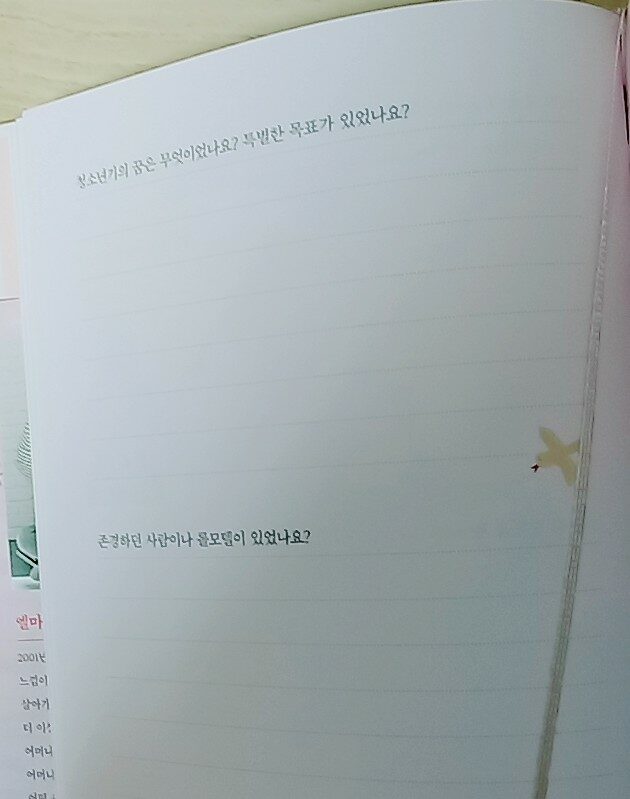 청소년기의 꿈은 무엇이었나요? 특별한 목표가 있었나요?
존경하던 사람이나 롤모델이 있었나요?
엘마
2001년
느낌이
살아가
더 이상
어머니
어머니